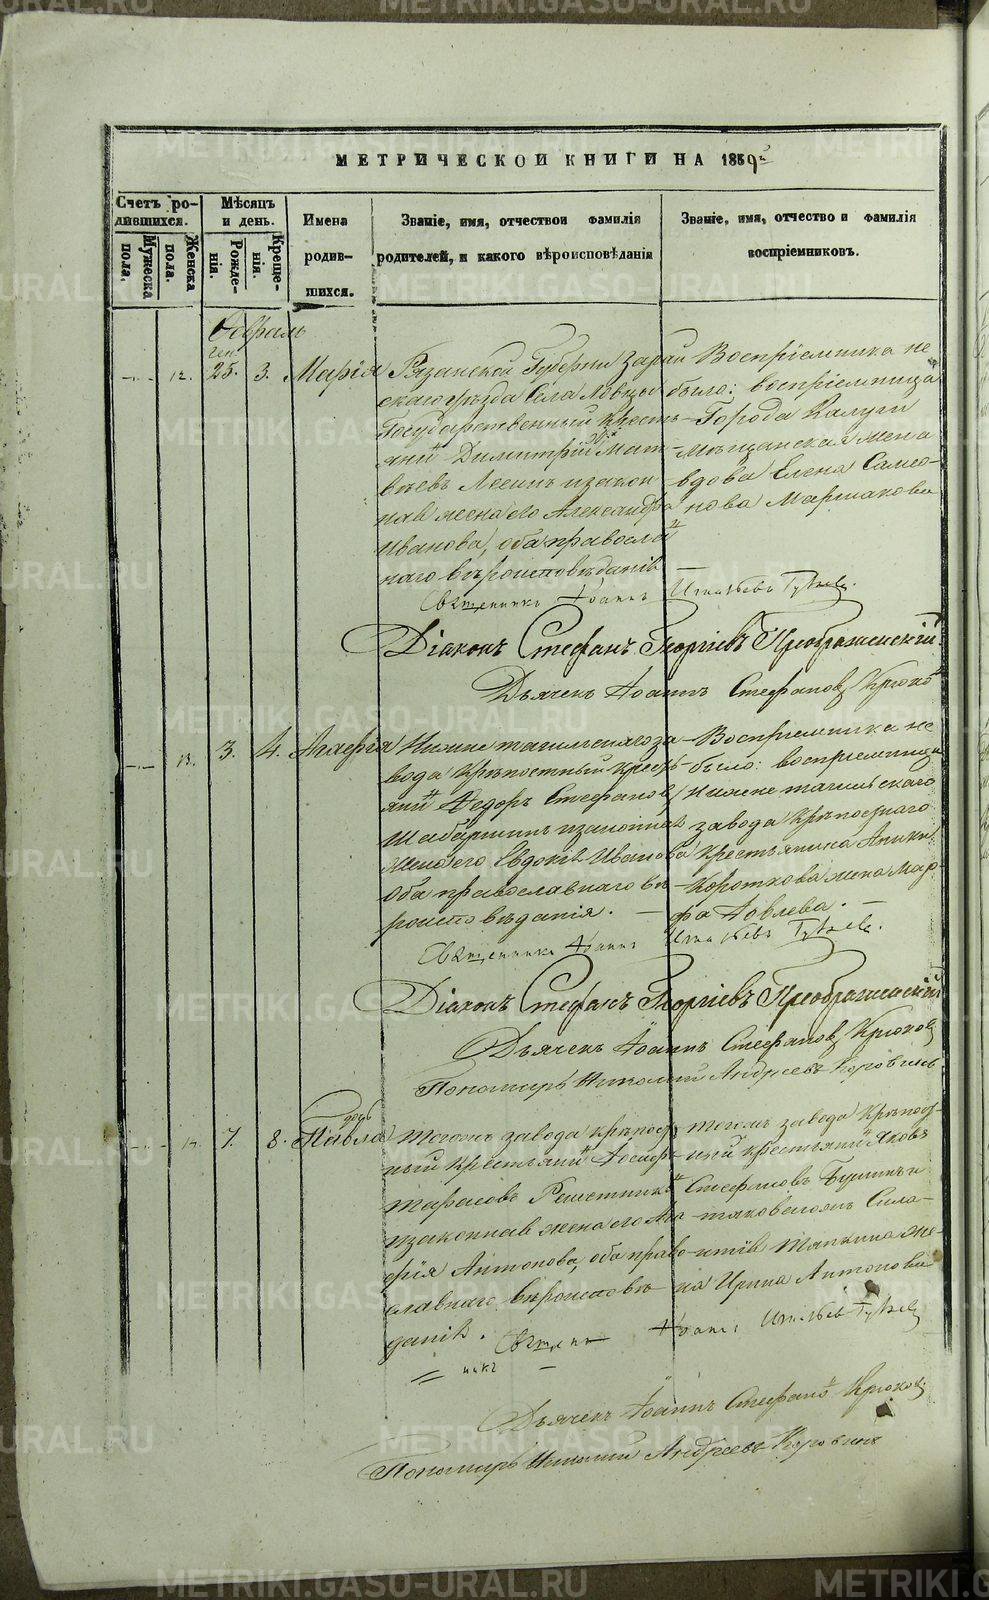 МЕТРИЧЕСКОЙ КНИГИ НА 1859й
Счетъ родившихся.
Мужеска пола.
Женска пола.
Мѣсяцъ и день.
Рожденія.
Крещенія.
Имена родившихся.
Званіе, имя, отчество и фамилія родителей, и какого вѣроисповѣданія
Званіе, имя, отчество и фамилія воспріемниковъ.
Февраль
ген.
12. 25. 3. Марія
Рязанской Губерніи Зарай
скаго уѣзда села Ловцы
Государственный Кресть
янинъ Димитрій Мат
вѣевъ Лосинъ и закон
ная жена его Александра
Иванова, оба православ
наго вѣроисповѣданія
Воспріемника не
было: воспріемница
Города Калуги
мѣщанская жена
вдова Елена Симео
нова Маршакова
Священникъ Іоаннъ Игнатьевъ
Діаконъ Стефанъ Георгіевъ Преображенскій
Дьячекъ Іоаннъ Стефановъ Крюковъ
13. 3. 4. Агафія
Нижнетагильскаго за
вода Крѣпостный кресть
янинъ Федоръ Стефановъ
Шабаршинъ и законная
жена его Евдокія Иванова
Оба православнаго вѣ
роисповѣданія.
Воспріемника не
было: воспріемница
Нижнетагильскаго
завода Крѣпостнаго
Крестьянина
Короткова жена Мар
фа Іовлева.
Священникъ Іоаннъ Игнатьевъ
Діаконъ Стефанъ Георгіевъ Преображенскій
Дьячекъ Іоаннъ Стефановъ Крюковъ
Пономарь Николай Андреевъ Коровинъ
7. 8. Павла
Тогожъ завода крѣпост
ный Крестьянинъ Іосифъ
Тарасовъ Решетниковъ
и законная жена его Ма
рія Антонова, оба право
славнаго вѣроисповѣ
данія.
Тогожъ завода Крѣпост
ный крестьянинъ Яковъ
Стефановъ
Сила
жe
на Ирина Антонова
Священникъ Іоаннъ Игнатьевъ
Дьячекъ Іоаннъ Стефановъ Крюковъ
Пономарь Николай Андреевъ Коровинъ
METRIKI.GASO-URAL.RU